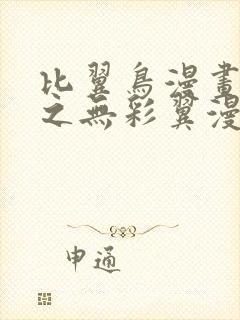 比翼鳥漫畫
之無彩翼漫
申通